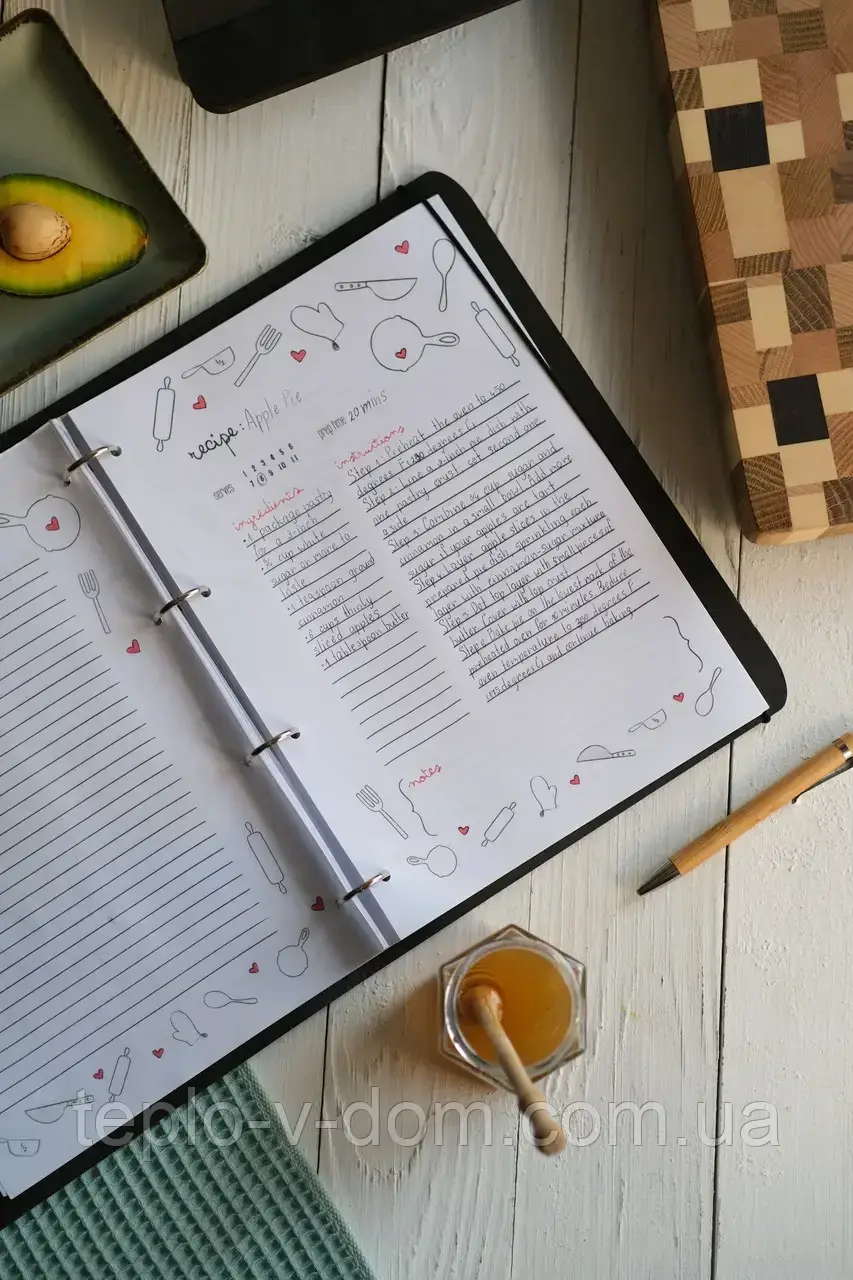 recipe: Apple Pie
prep time: 20 mins
serves
1 2 3 4 5 6
7 8 9 10 11
ingredients
• 1 package pastry
for a 9-inch
¾ cup white
sugar or more to
taste
• 1 teaspoon ground
cinnamon
• 6 cups thinly
sliced apples
• 1 tablespoon butter
instructions
Step 1: Preheat the oven to 450
degrees F (230 degrees C)
Step 2: Line a 9-inch pie dish with
one pastry crust. set second one
aside
Step 3: Combine ¾ cup sugar and
cinnamon in a small bowl. Add more
sugar if your apples are tart
Step 4: Layer apple slices in the
prepared pie dish, sprinkling each
layer with cinnamon-sugar mixture
Step 5: Dot top layer with small pieces of
butter. Cover with top crust
Step 6: Bake pie on the lowest rack of the
preheated oven for 10 minutes. Reduce
oven temperature to 350 degrees F
(175 degrees C) and continue baking.
notes
½
½
½
teplo-v-dom.com.ua